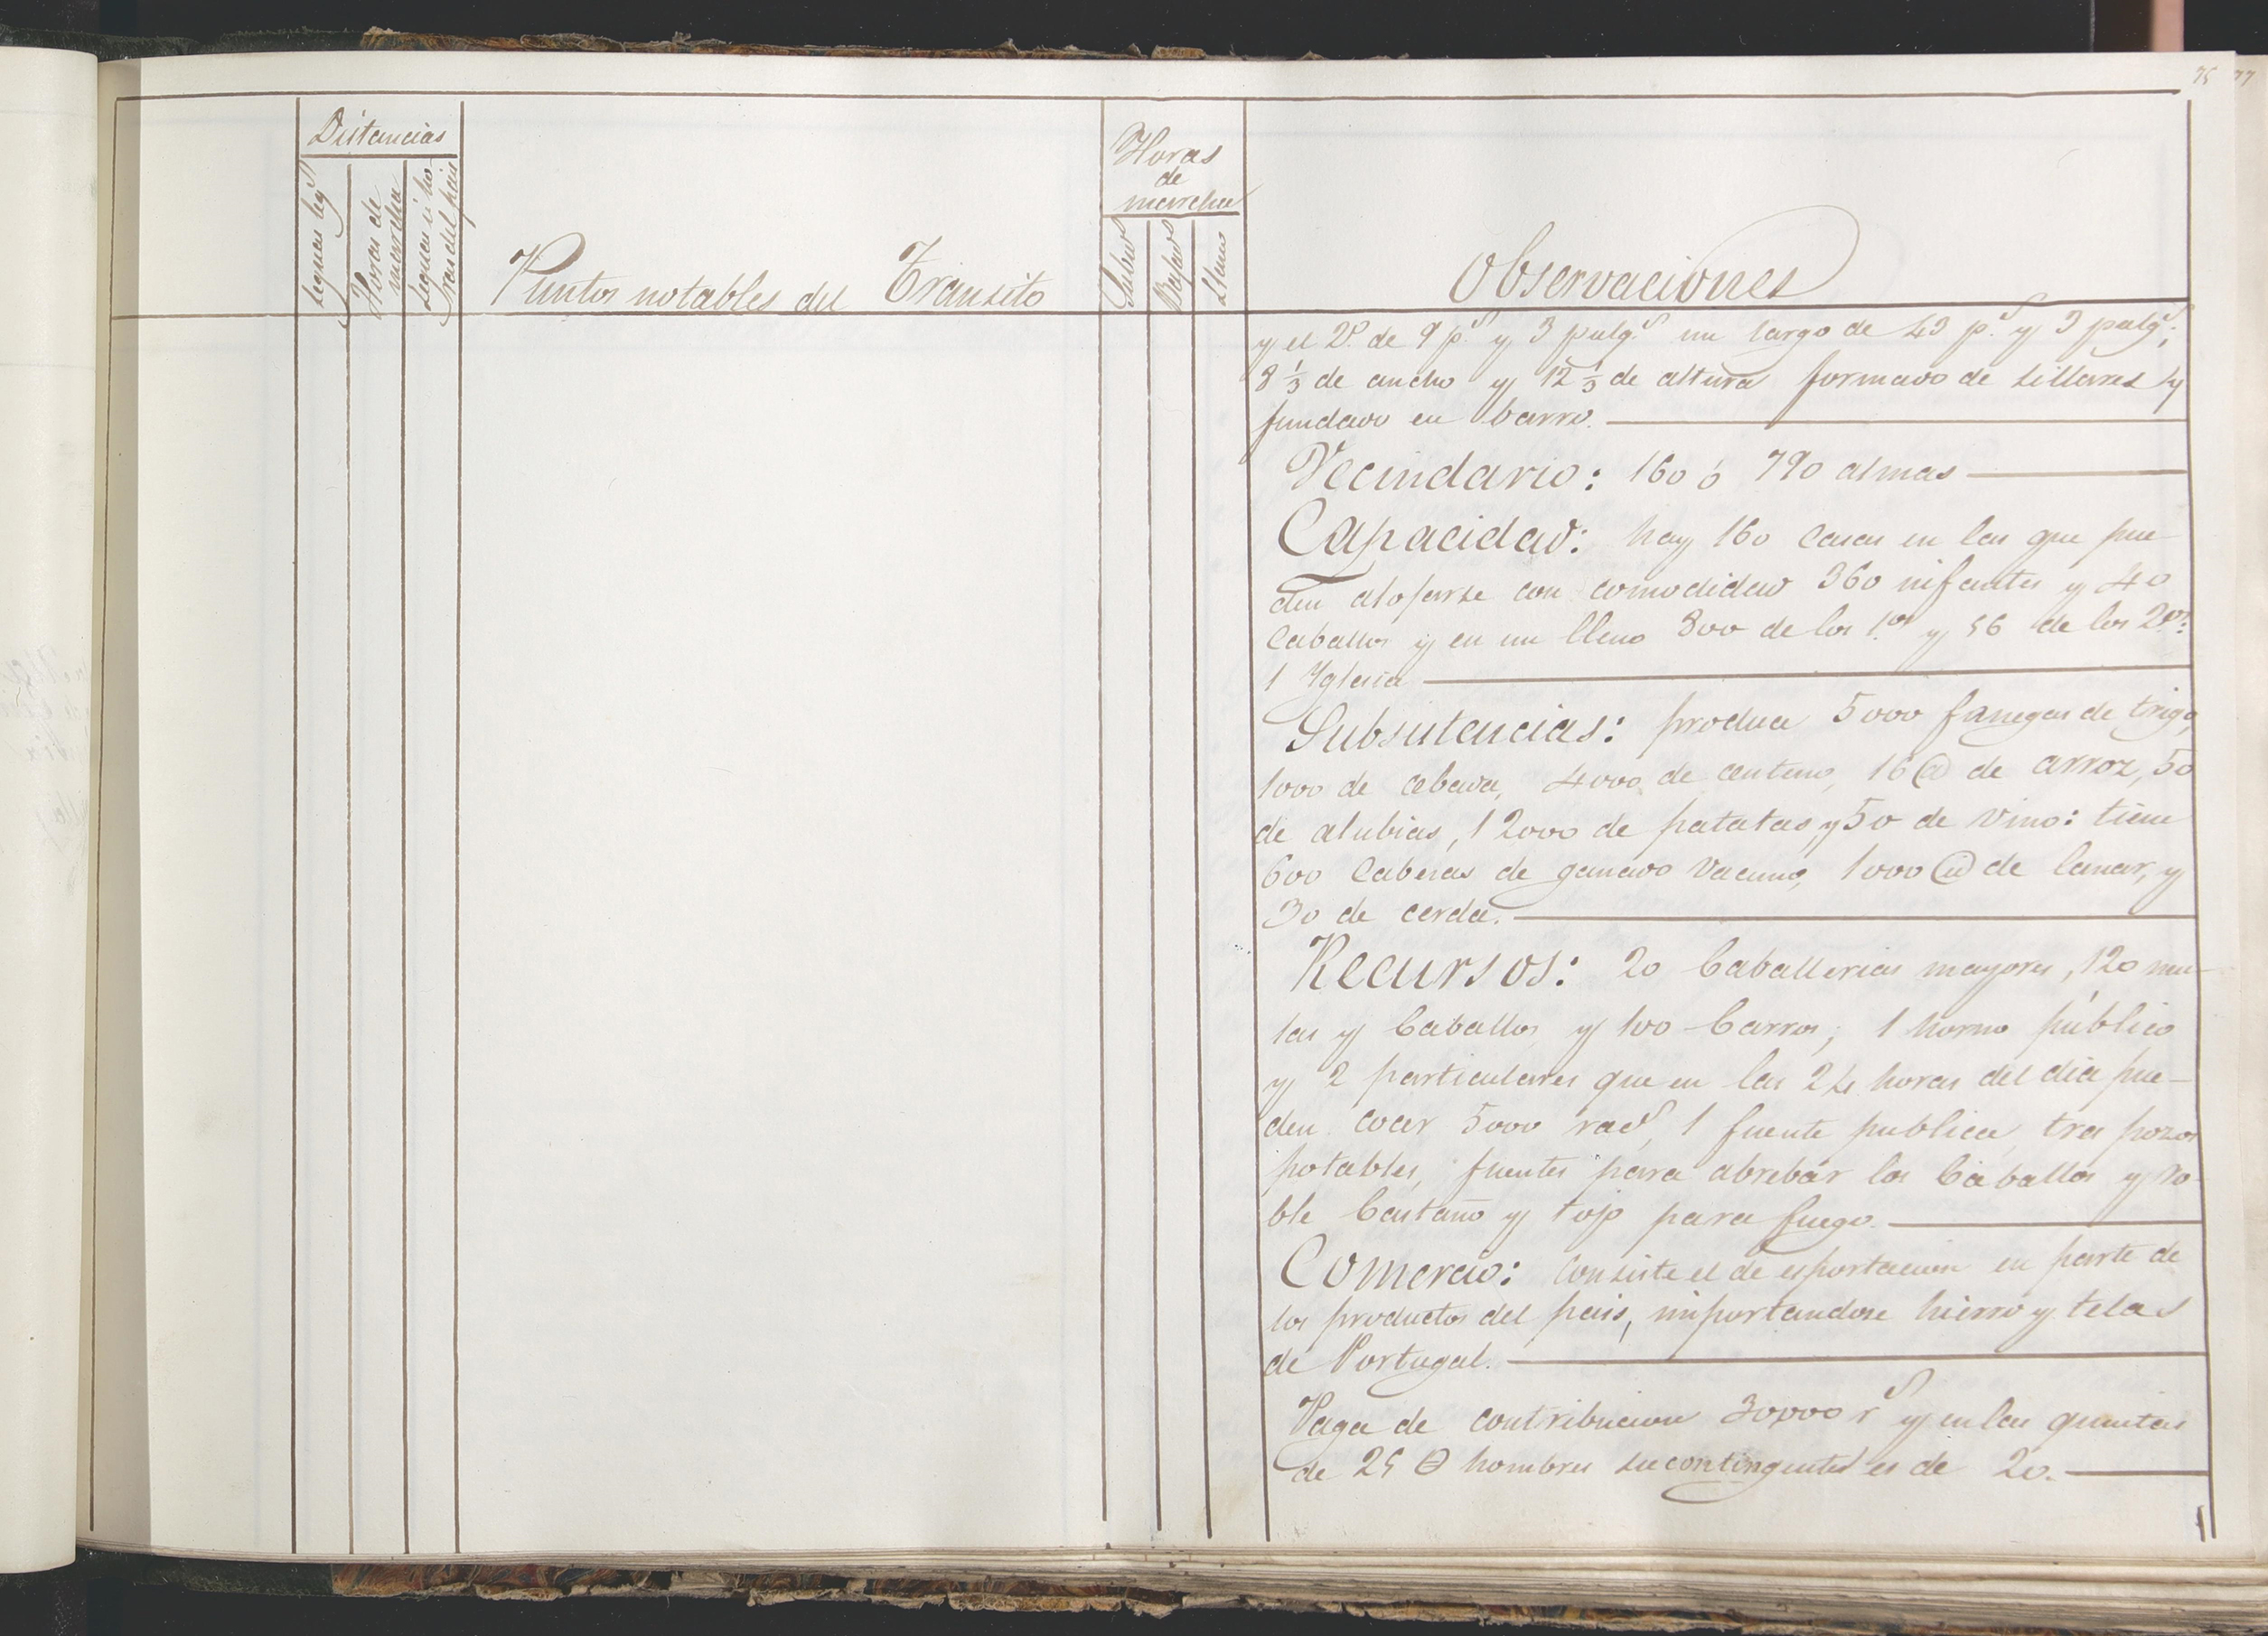 75 77
Distancias
Leguas leg.s
Horas de
marcha
Leguas ú ho
ras del pais
Puntos notables del Tránsito
Horas
de
marcha
Suben
Bajan
Llano
Observaciones
y el 2º de 9 p.s y 3 pulg.s un largo de 43 p.s y 3 pulg.s;
8 1/3 de ancho y 12 1/3 de altura formado de sillares y
fundado en barro.
Vecindario: 160 ó 790 almas
Capacidad: hay 160 casas en las que pue-
den alojarse con comodidad 360 infantes y 40
caballos y en un lleno 800 de los 1.os y 56 de los 2.os:
1 Yglesia
Subsistencias: produce 5000 fanegas de trigo,
1000 de cebada, 4000 de centeno, 16 @ de arroz, 50
de alubias, 12000 de patatas, y 50 de vino: tiene
600 Cabezas de ganado vacuno, 1000 @ de lanar, y
30 de cerda.
Recursos: 20 Caballerias mayores, 120 mu-
las y Caballos y 100 Carros; 1 horno público
y 2 particulares que en las 24 horas del dia pue-
den cocer 5000 rac.s, 1 fuente publica, tres pozos
potables, fuentes para abrebár los Caballos y ro-
ble Castaño y tojo para fuego.
Comercio: Consiste el de esportacion en parte de
los productos del pais, importandose hierro y telas
de Portugal.
Paga de contribucion 30,000 r.s y en las quintas
de 25 Ѳ hombres su contingente es de 20.